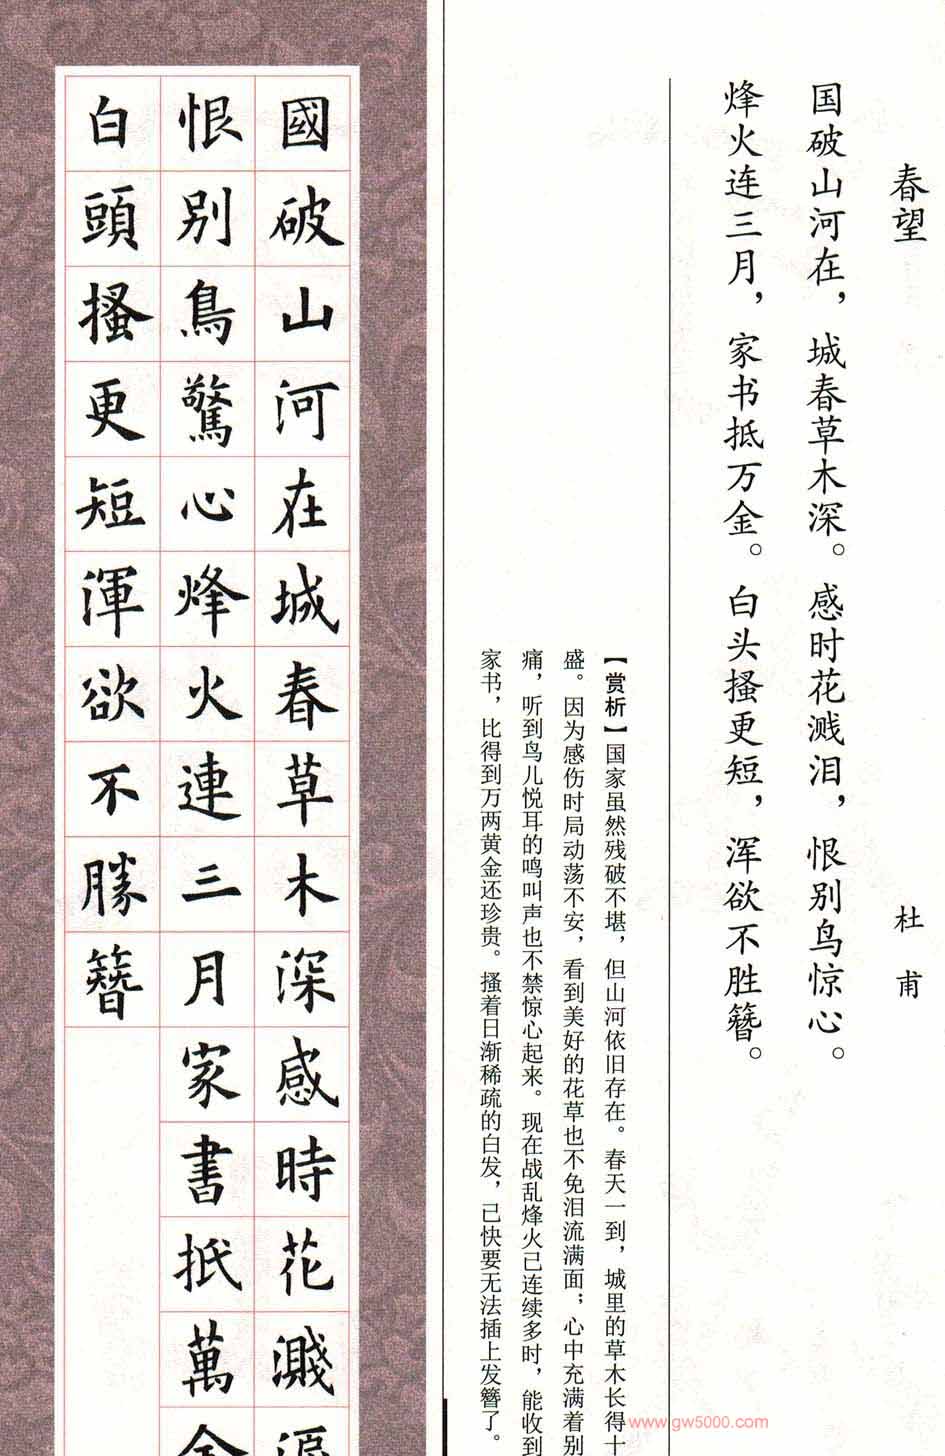 春望
杜甫
国破山河在，城春草木深。感时花溅泪，恨别鸟惊心。
烽火连三月，家书抵万金。白头搔更短，浑欲不胜簪。
【赏析】国家虽然残破不堪，但山河依旧存在。春天一到，城里的草木长得十
盛。因为感伤时局动荡不安，看到美好的花草也不免泪流满面；心中充满着别
痛，听到鸟儿悦耳的鸣叫声也不禁惊心起来。现在战乱烽火已连续多时，能收到
家书，比得到万两黄金还珍贵。搔着日渐稀疏的白发，已快要无法插上发簪了。
國破山河在城春草木深感時花濺
恨别鳥驚心烽火連三月家書抵萬金
白頭搔更短渾欲不勝簪
www.gw5000.com